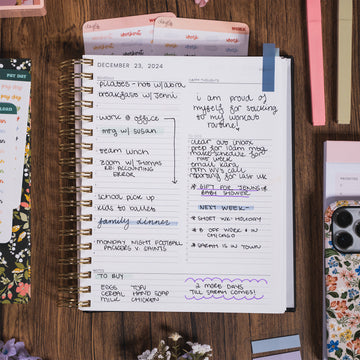 DECEMBER 23, 2024
pilates - hot w/ Laura
breakfast w/ Jenni
work @ office
mtg w/ susan
team lunch
ZOOM W/ THOMAS
RE: ACCOUNTING
ERROR
school pick up
kids to ballet
family dinner
MONDAY NIGHT FOOTBALL
PACKERS V. SAINTS
NOTES
TO BUY
EGGS TOFU
CEREAL HAND SOAP
MILK CHICKEN
HAPPY THOUGHTS
i am proud of
myself for sticking
to my workout
routine!
TO DO
clear out inbox
prep for 10am mtg
make schedule for
next week
email kara
reporting for last wk
* GIFT FOR JENNI'S
BABY SHOWER
NEXT WEEK -
* SHORT WK - HOLIDAY
* B OFF WORK & IN
CHICAGO
* SARAH IS IN TOWN
2 MORE DAYS
TILL SARAH COMES!
PAY DAY
WORK